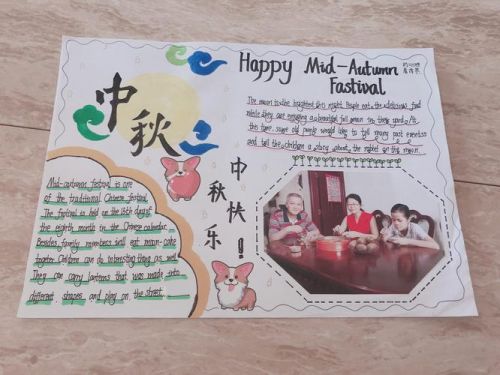 Happy Mid-Autumn
Fastival
The moon is the brightest this night. People eat the delicious food
while they are enjoying a beautiful full moon in these yard. At
this time, some old people would like to tell many past
and tell the children a story about the rabbit on the moon.
中
秋
中
秋
快
乐
!
Mid-autumn festival is one
of the traditional Chinese festival.
The festival is held on the 15th day of
the eighth month in the Chinese calendar.
Besides, family members will eat moon-cake
together. Children can do interesting thing as well.
They can carry lanterns that was made into
different shapes and play on the street.